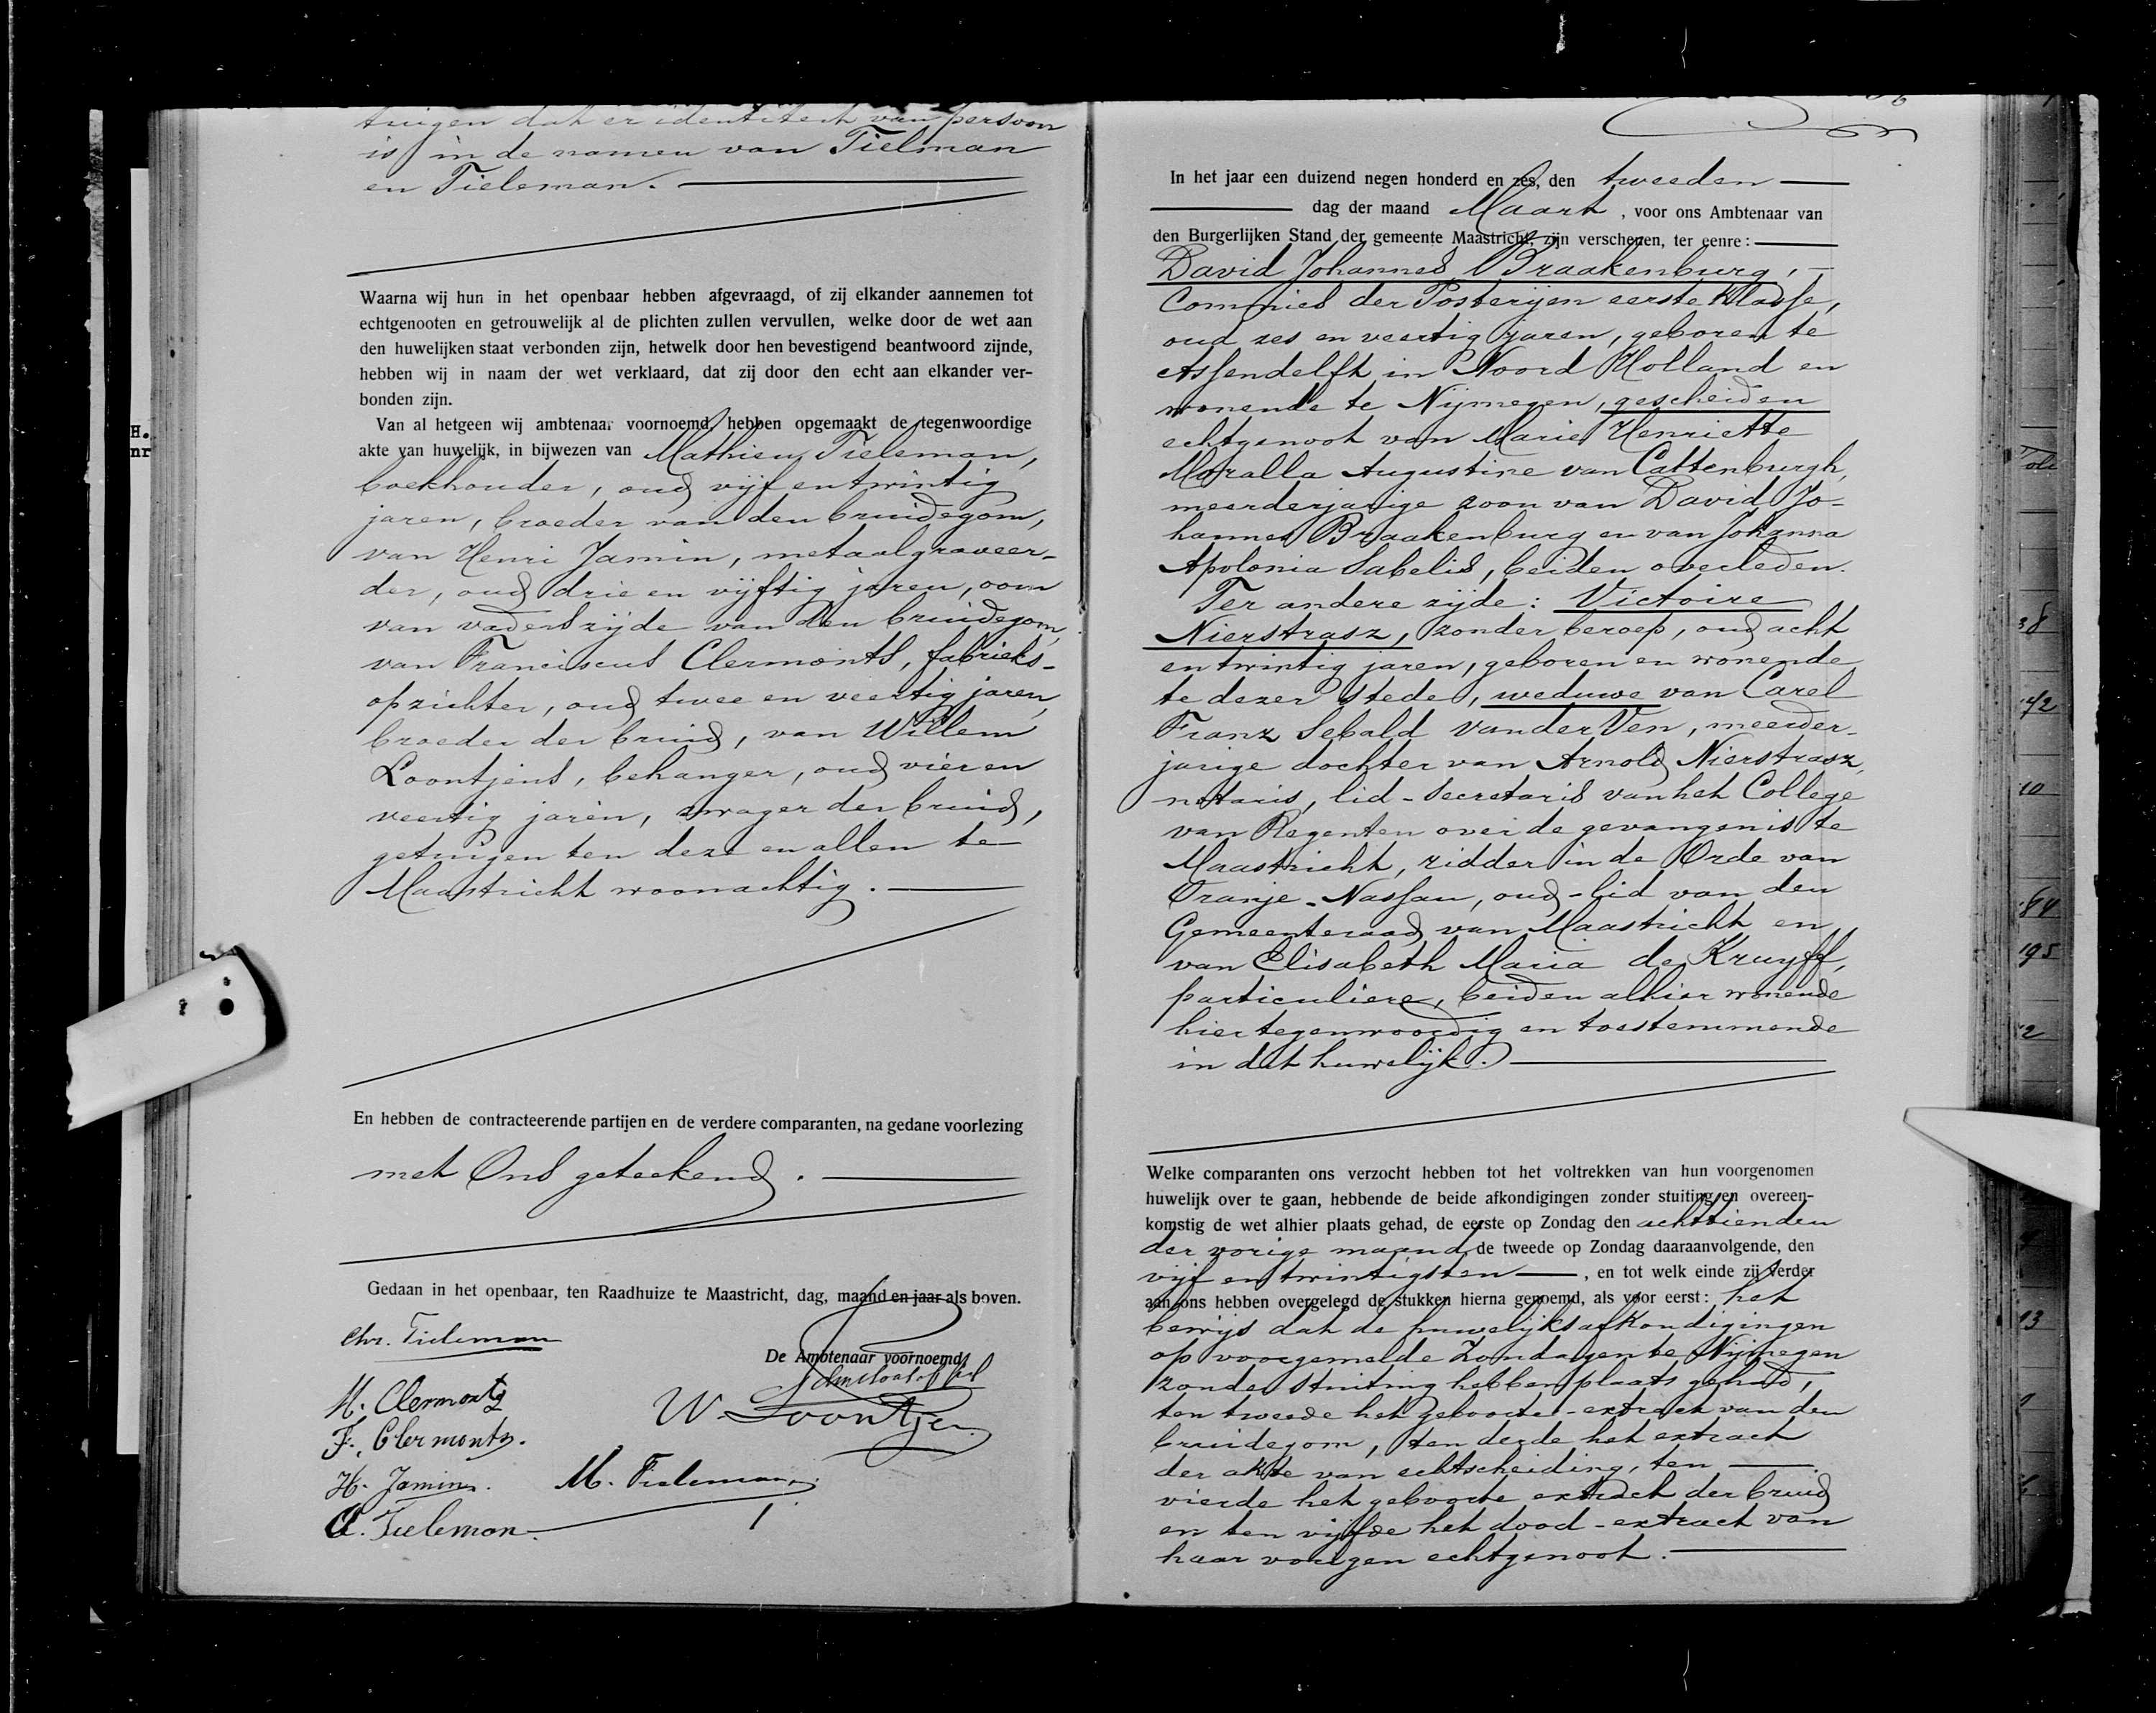 tuigen dat er identiteit van persoon
is in de namen van Tielman
en Tieleman.
Waarna wij hun in het openbaar hebben afgevraagd, of zij elkander aannemen tot
echtgenooten en getrouwelijk al de plichten zullen vervullen, welke door de wet aan
den huwelijken staat verbonden zijn, hetwelk door hen bevestigend beantwoord zijnde,
hebben wij in naam der wet verklaard, dat zij door den echt aan elkander ver-
bonden zijn.
Van al hetgeen wij ambtenaar voornoemd, hebben opgemaakt de tegenwoordige
akte van huwelijk, in bijwezen van Mathieu Tieleman,
boekhouder, oud vijf en twintig
jaren, broeder van den bruidegom,
van Henri Jamin, metaalgraveer-
der, oud drie en vijftig jaren, oom
van vaderszijde van den bruidegom,
van Franciscus Clermonts, fabrieks-
opzichter, oud twee en veertig jaren,
broeder der bruid, van Willem
Loontjens, behanger, oud vier en
veertig jaren, zwager der bruid,
getuigen ten deze en allen te
Maastricht woonachtig.
En hebben de contracteerende partijen en de verdere comparanten, na gedane voorlezing
met Ons geteekend.
Gedaan in het openbaar, ten Raadhuize te Maastricht, dag, maand en jaar als boven.
Chr. Tieleman
De Ambtenaar voornoemd
M. Clermonts
W. Loontjens
F. Clermonts.
H. Jamin. M. Tieleman
A. Tieleman
In het jaar een duizend negen honderd en zes, den tweeden
dag der maand Maart, voor ons Ambtenaar van
den Burgerlijken Stand der gemeente Maastricht, zijn verschenen, ter eenre:
David Johannes Braakenburg,
Commies der Posterijen eerste Klasse,
oud zes en veertig jaren, geboren te
Assendelft in Noord Holland en
wonende te Nijmegen, gescheiden
echtgenoot van Marie Henriette
Moralla Augustine van Cattenburgh,
meerderjarige zoon van David Jo-
hannes Braakenburg en van Johanna
Apolonia Sabelis, beiden overleden.
Ter andere zijde: Victoire
Nierstrasz, zonder beroep, oud acht
en twintig jaren, geboren en wonende
te dezer stede, weduwe van Carel
Franz Sebald van der Ven, meerder-
jarige dochter van Arnold Nierstrasz,
notaris, lid-secretaris van het College
van Regenten over de gevangenis te
Maastricht, ridder in de Orde van
Oranje-Nassau, oud-lid van den
Gemeenteraad van Maastricht en
van Elisabeth Maria de Kruyff,
particuliere, beiden alhier wonende
hier tegenwoordig en toestemmende
in dit huwelijk.
Welke comparanten ons verzocht hebben tot het voltrekken van hun voorgenomen
huwelijk over te gaan, hebbende de beide afkondigingen zonder stuiting en overeen-
komstig de wet alhier plaats gehad, de eerste op Zondag den achttienden
der vorige maand, de tweede op Zondag daaraanvolgende, den
vijf en twintigsten, en tot welk einde zij verder
aan ons hebben overgelegd de stukken hierna genoemd, als voor eerst: het
bewijs dat de huwelijksafkondigingen
op voorgemelde Zondagen te Nijmegen
zonder stuiting hebben plaats gehad,
ten tweede het geboorte-extract van den
bruidegom, ten derde het extract
der akte van echtscheiding, ten
vierde het geboorte extract der bruid
en ten vijfde het dood-extract van
haar vorigen echtgenoot.